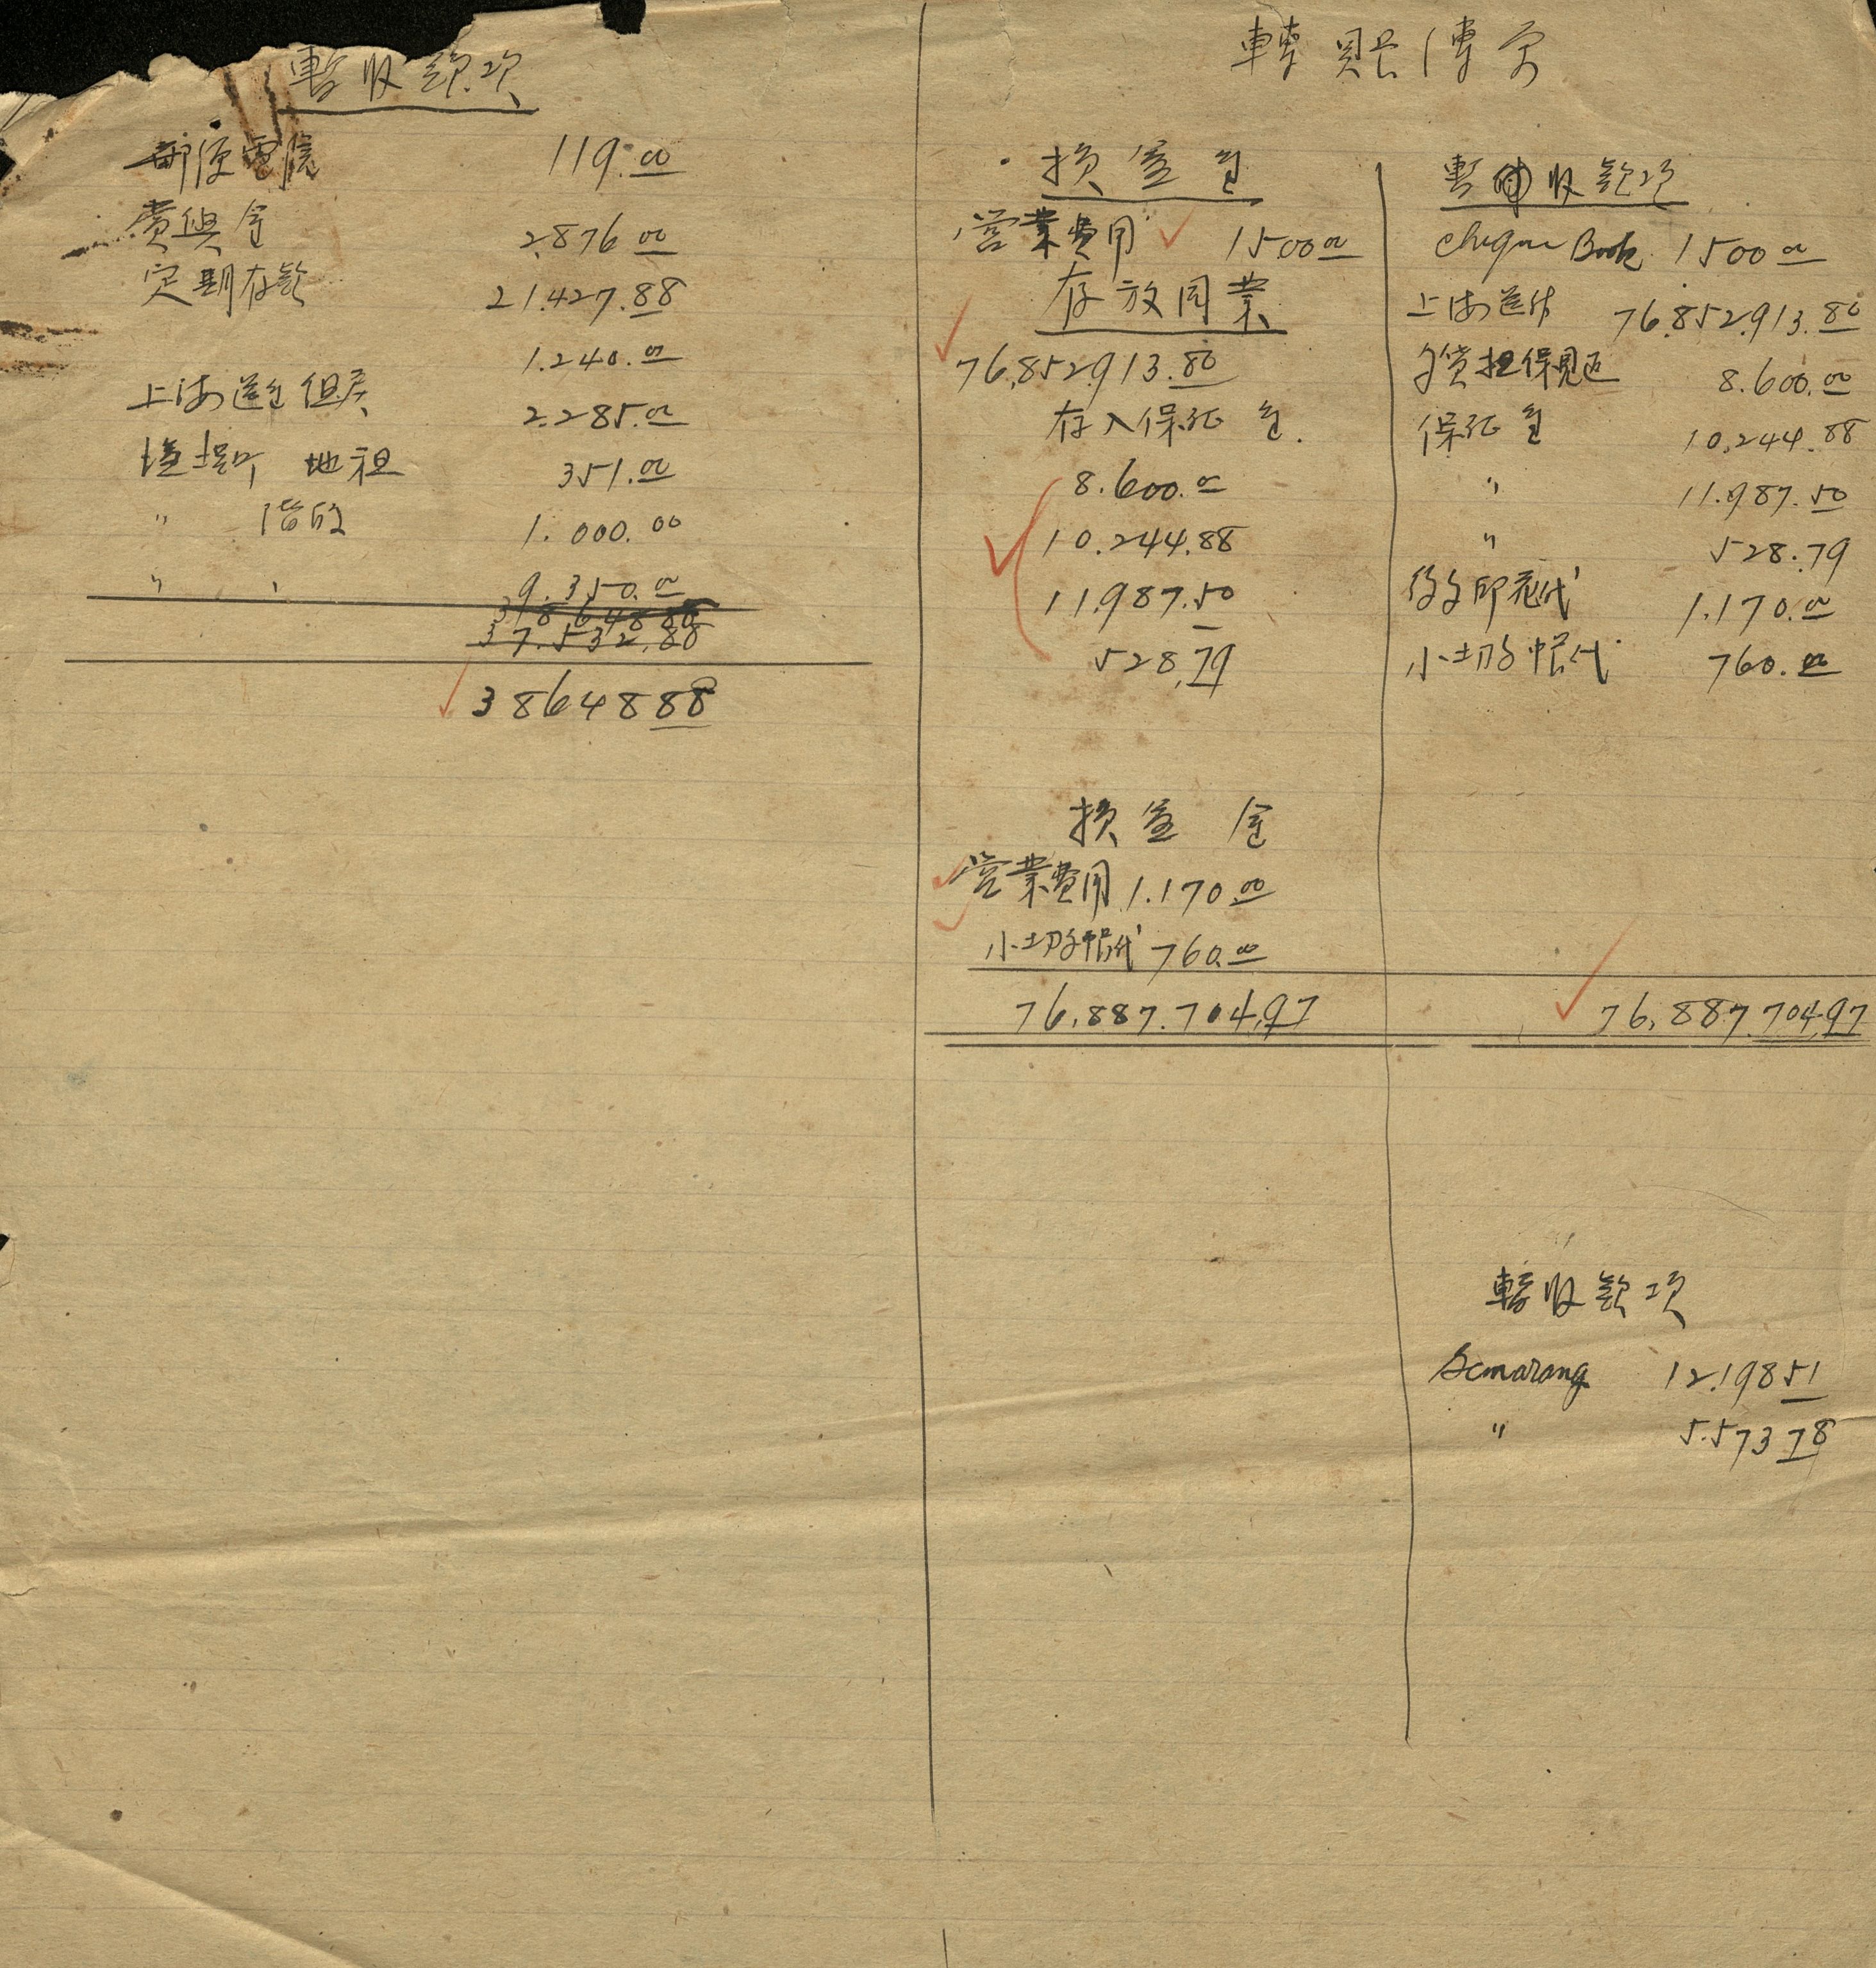 暫收款項
郵便電信 119.00
賞與金 2.876 00
定期存款 21.427.88
1.240.00
上海送金 2.285.00
地租 351.00
〃 1.000.00
〃 〃 9.350.00
38 648 88
37.532.88
3864888
轉賬傳票
損益金
営業費用 1500 00
存放同業
76,852,913.80
存入保証金.
8.600.00
10.244.88
11.987.50
528.79
損益金
営業費用 1.170.00
小切手帳代 760.00
76,887.704.97
暫收款項
Cheque Book 1500 00
上海送付 76.852.913.80
担保見返 8.600.00
保証金 10.244.88
〃 11.987.50
〃 528.79
印花代 1.170.00
小切手帳代 760.00
76,887.704.97
暫收款項
Semarang 12.198 51
〃 5.573 78